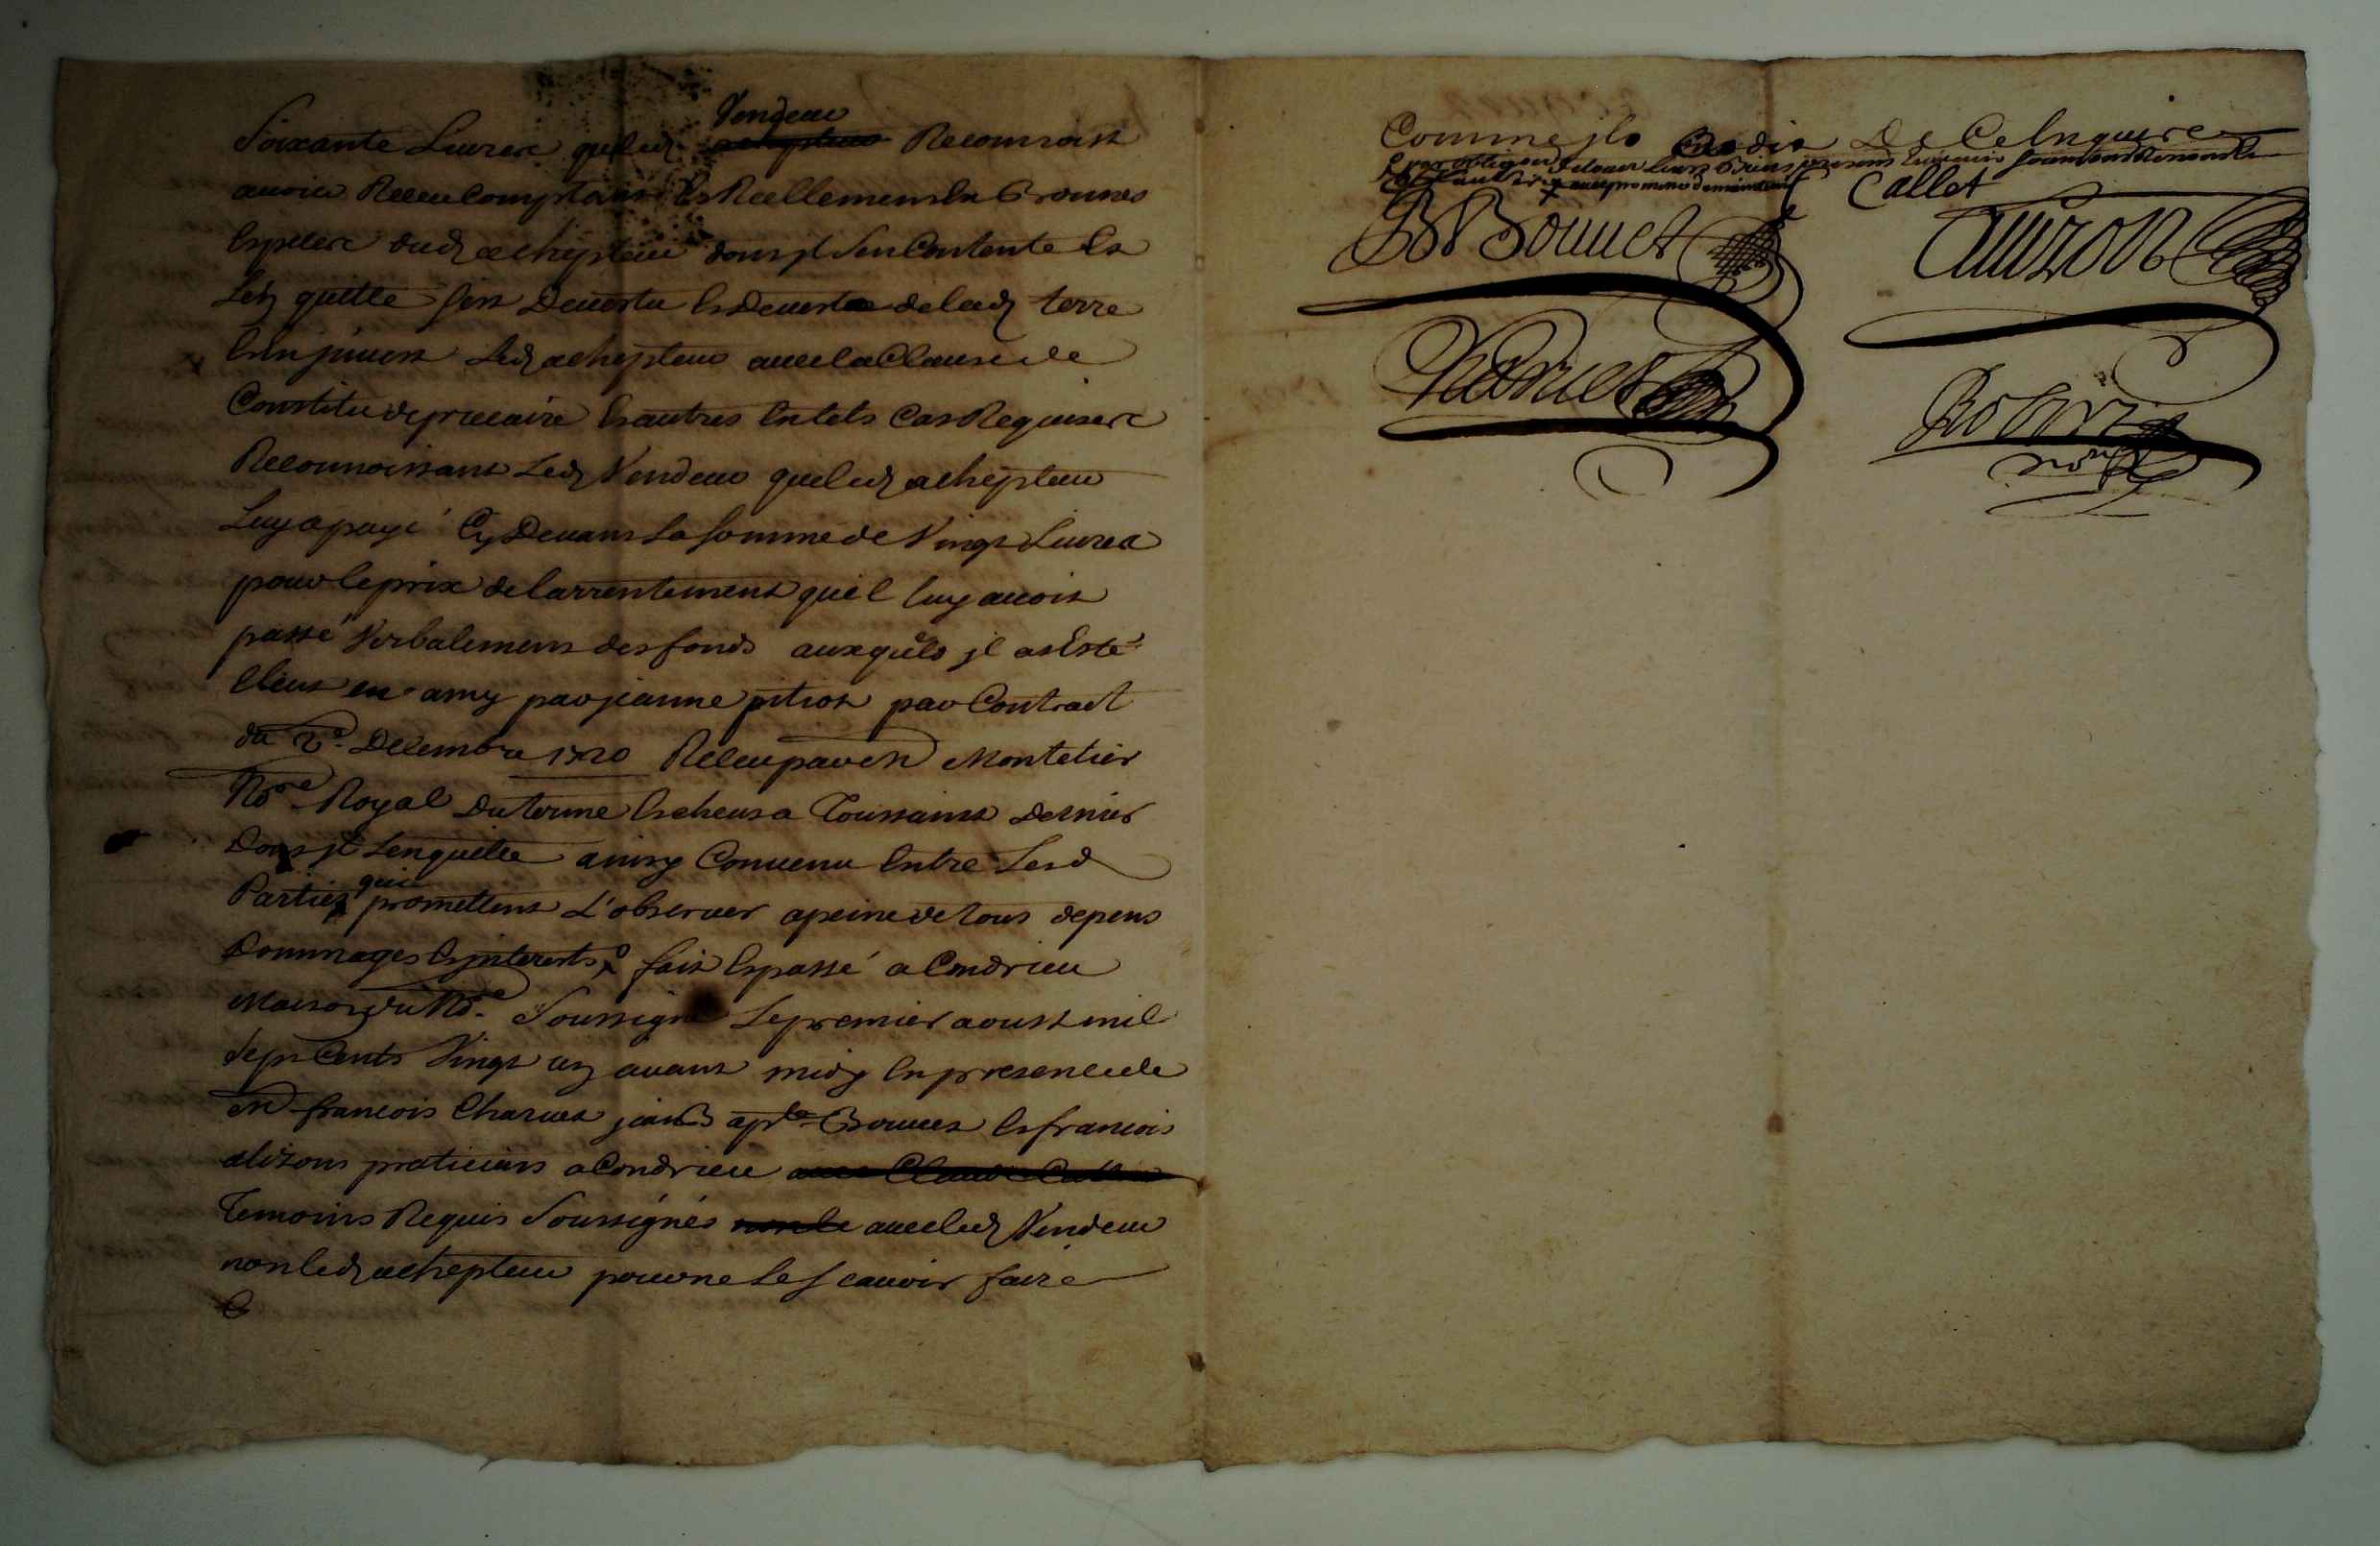 Vendeur
Soixante Livres que led achepteur Reconnoist
auoir Receu Comptant Et Reellement En Bonnes
Especes dud achepteur dont jl S'en Contente Et
Led quitte Dud achepteur aueclaClause de
Constitu deprecaire Et autres En tels Cas Requises
Reconnoissant Led Vendeur queled achepteur
Luy a payé Cy Deuant La somme de Vingt Liures
pour le prix de larrentement quil luy auoit
passé Verbalement des fonds auxquels jl as Esté
Eleut en amy par jeanne pitiot par Contract
du 2e Decembre 1720 Receu par Me Montelier
Nore Royal Du terme Escheus a Toussaint dernier
Dont jl Len quitte ainsy Conuenu Entre Lesd
qui
Parties promettent L'obseruer a peine de tous depens
Dommages Et jnterests fait Et passé a Condrieu
Maison du Nore Soussigné Le premier aoust mil
Sept Cents Vingt un auant midy En presence de
Me francois Charuet jean Bapte Bonnet Et francois
alizons praticiens a Condrieu
Temoins Requis Soussignés auec led Vendeur
non led achepteur pour ne Le scauoir faire
Comme jls dit De Ce Enquis
Callet
B Bonnet
Charuet